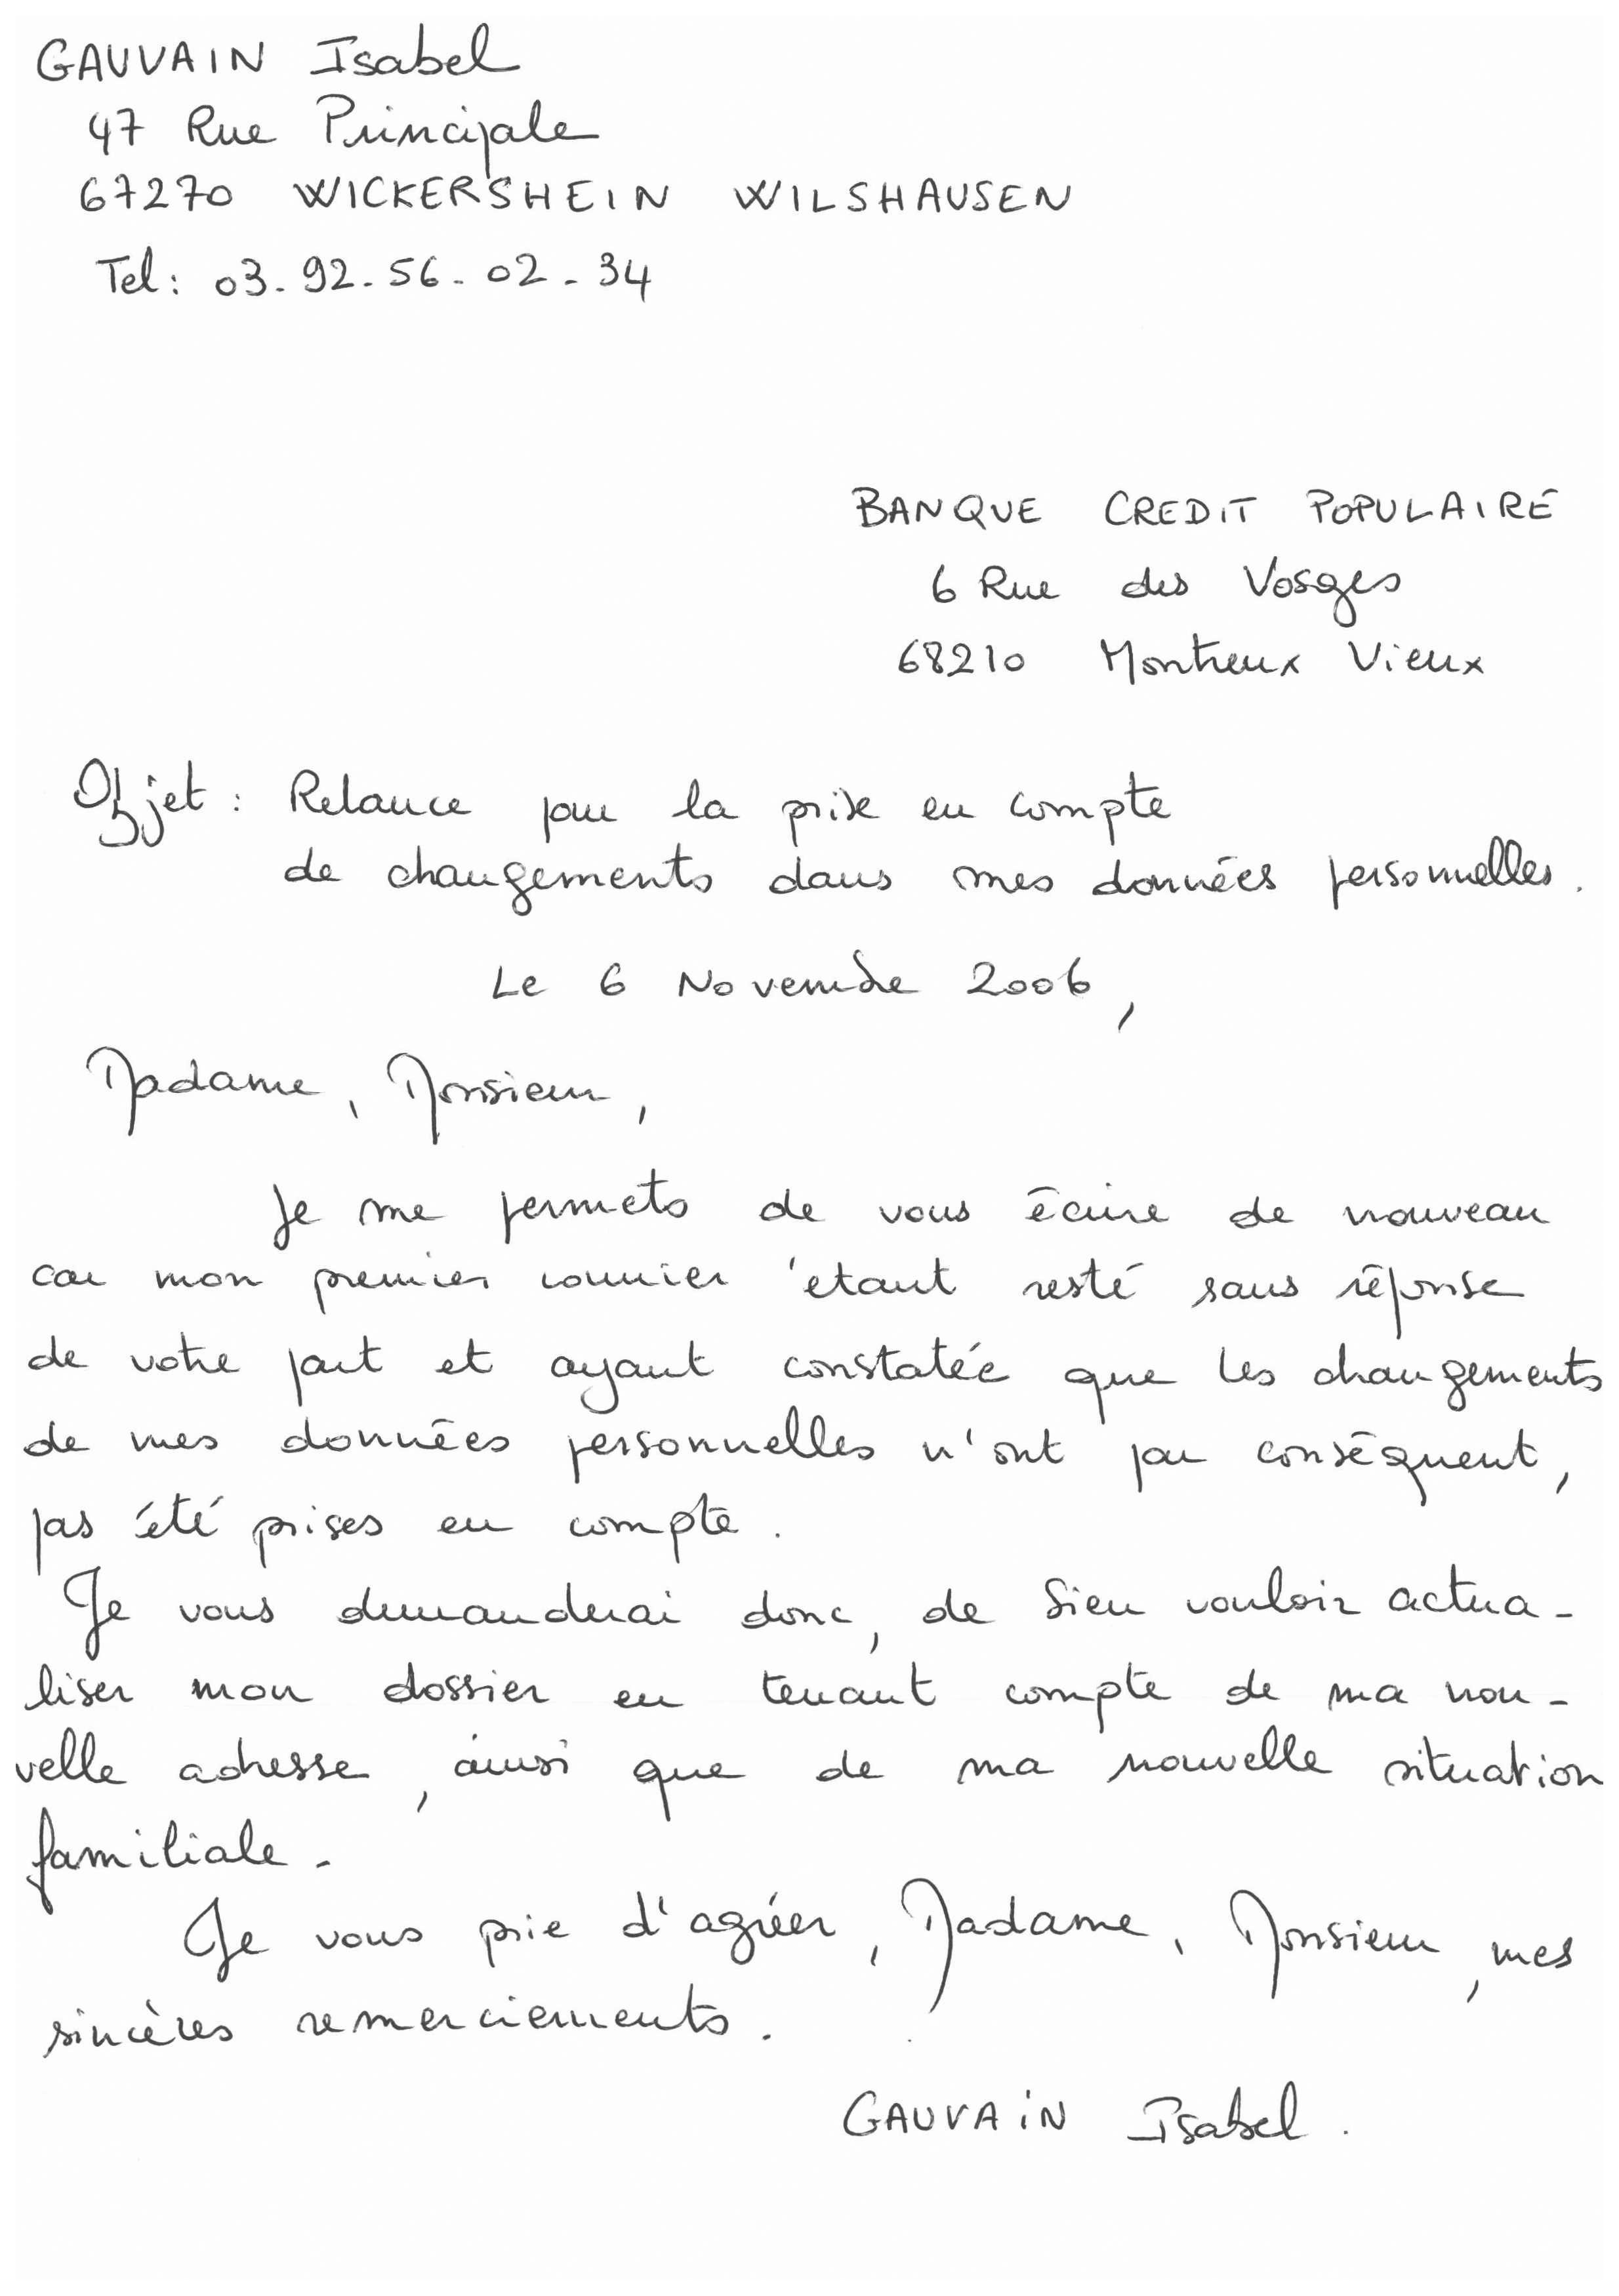 GAUVAIN Isabel
47 Rue Principale
67270 WICKERSHEIN WILSHAUSEN
Tel: 03.92.56.02.34
BANQUE CREDIT POPULAIRE
6 Rue des Vosges
68210 Montreux Vieux
Objet : Relance pour la prise en compte
de changements dans mes données personnelles.
Le 6 Novembre 2006,
Madame, Monsieur,
Je me permets de vous écrire de nouveau
car mon premier courrier étant resté sans réponse
de votre part et ayant constatée que les changements
de mes données personnelles n'ont par conséquent,
pas été prises en compte.
Je vous demanderai donc, de bien vouloir actua-
liser mon dossier en tenant compte de ma nou-
velle adresse, ainsi que de ma nouvelle situation
familiale.
Je vous prie d'agréer, Madame, Monsieur, mes
sincères remerciements.
GAUVAIN Isabel.